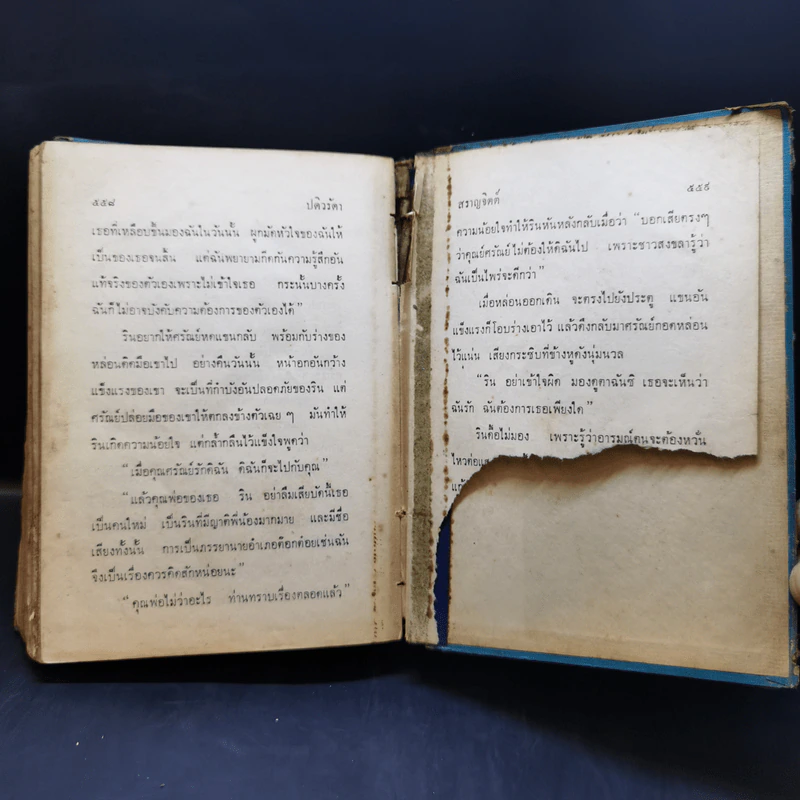 ๕๕๘ ปดิวรัดา
เธอที่เหลือบขึ้นมองฉันในวันนั้น ผูกมัดหัวใจของฉันให้
เป็นของเธอจนสิ้น แต่ฉันพยายามกีดกันความรู้สึกอัน
แท้จริงของตัวเองเพราะไม่เข้าใจเธอ กระนั้นบางครั้ง
ฉันก็ไม่อาจบังคับความต้องการของตัวเองได้”
รินอยากให้ศรัณย์หดแขนกลับ พร้อมกับร่างของ
หล่อนติดมือเขาไป อย่างคืนวันนั้น หน้าอกอันกว้าง
แข็งแรงของเขา จะเป็นที่กำบังอันปลอดภัยของริน แต่
ศรัณย์ปล่อยมือของเขาให้ตกลงข้างตัวเฉย ๆ มันทำให้
รินเกิดความน้อยใจ แต่กล้ำกลืนไว้แข็งใจพูดว่า
“เมื่อคุณศรัณย์รักดิฉัน ดิฉันก็จะไปกับคุณ”
“แล้วคุณพ่อของเธอ ริน อย่าลืมเสียบัดนี้เธอ
เป็นคนใหม่ เป็นรินที่มีญาติพี่น้องมากมาย และมีชื่อ
เสียงทั้งนั้น การเป็นภรรยานายอำเภอต๊อกต๋อยเช่นฉัน
จึงเป็นเรื่องควรคิดสักหน่อยนะ”
“คุณพ่อไม่ว่าอะไร ท่านทราบเรื่องตลอดแล้ว”
สราญจิตต์ ๕๕๙
ความน้อยใจทำให้รินหันหลังกลับเมื่อว่า “บอกเสียตรงๆ
ว่าคุณย์ศรัณย์ไม่ต้องให้ดิฉันไป เพราะชาวสงขลารู้ว่า
ฉันเป็นไพร่จะดีกว่า”
เมื่อหล่อนออกเดิน จะตรงไปยังประตู แขนอัน
แข็งแรงก็โอบร่างเอาไว้ แล้วดึงกลับมาศรัณย์กอดหล่อน
ไว้แน่น เสียงกระซิบที่ข้างหูดังนุ่มนวล
“ริน อย่าเข้าใจผิด มองดูตาฉันซิ เธอจะเห็นว่า
ฉันรัก ฉันต้องการเธอเพียงใด”
รินดื้อไม่มอง เพราะรู้ว่าอารมณ์ตนจะต้องหวั่น
ไหวต่อ